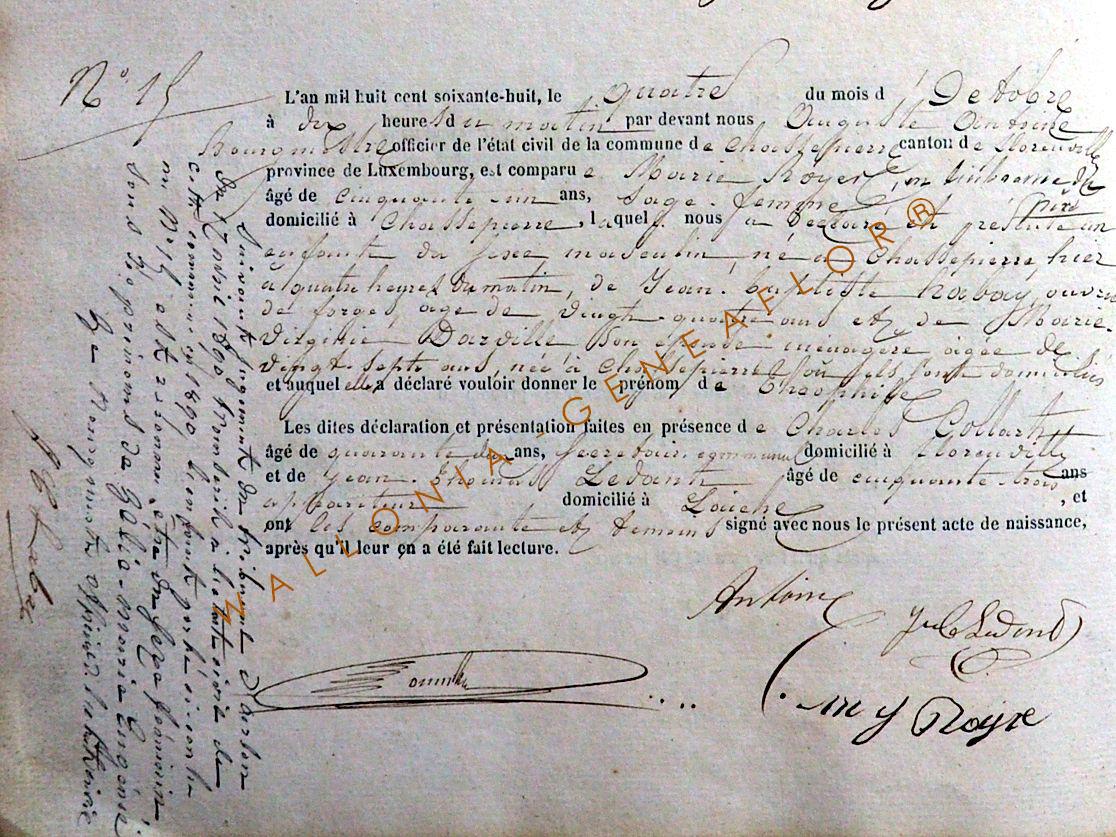 N° 15
L'an mil huit cent soixante-huit, le quatre du mois d' Octobre
à dix heures du matin par devant nous Auguste Antoine
Bourgmestre officier de l'état civil de la commune de Chassepierre canton de Florenville
province de Luxembourg, est comparue Marie Royer,
âgé de cinquante un ans, Sage-femme
domicilié à Chassepierre, laquelle nous a déclaré et présenté un
enfant du sexe masculin, né à Chassepierre, hier
à quatre heures du matin, de Jean-Baptiste habay, ouvrier
de forges, âgé de vingt-quatre ans et de Marie
Virginie Darville son épouse ménagère âgée de
vingt sept ans, née à Chassepierre où ils sont domiciliés
et auquel elle a déclaré vouloir donner le prénom de Théophile
Les dites déclaration et présentation faites en présence de Charles Collart
âgé de quarante ans, Secrétaire communal domicilié à Florenville
et de Jean Thomas Ledant âgé de cinquante trois ans
appariteur domicilié à Laiche, et
ont les comparante et témoins signé avec nous le présent acte de naissance,
après qu'il leur en a été fait lecture.
Antoine
Ledent
m j Royre
Suivant jugement du tribunal d'arlon
du 1890
cette commune en 1890 l'enfant
au N° 15 est être du sexe féminin
sous les prénoms de Marie Eugénie
WALLONIA-GENEAFLOR®